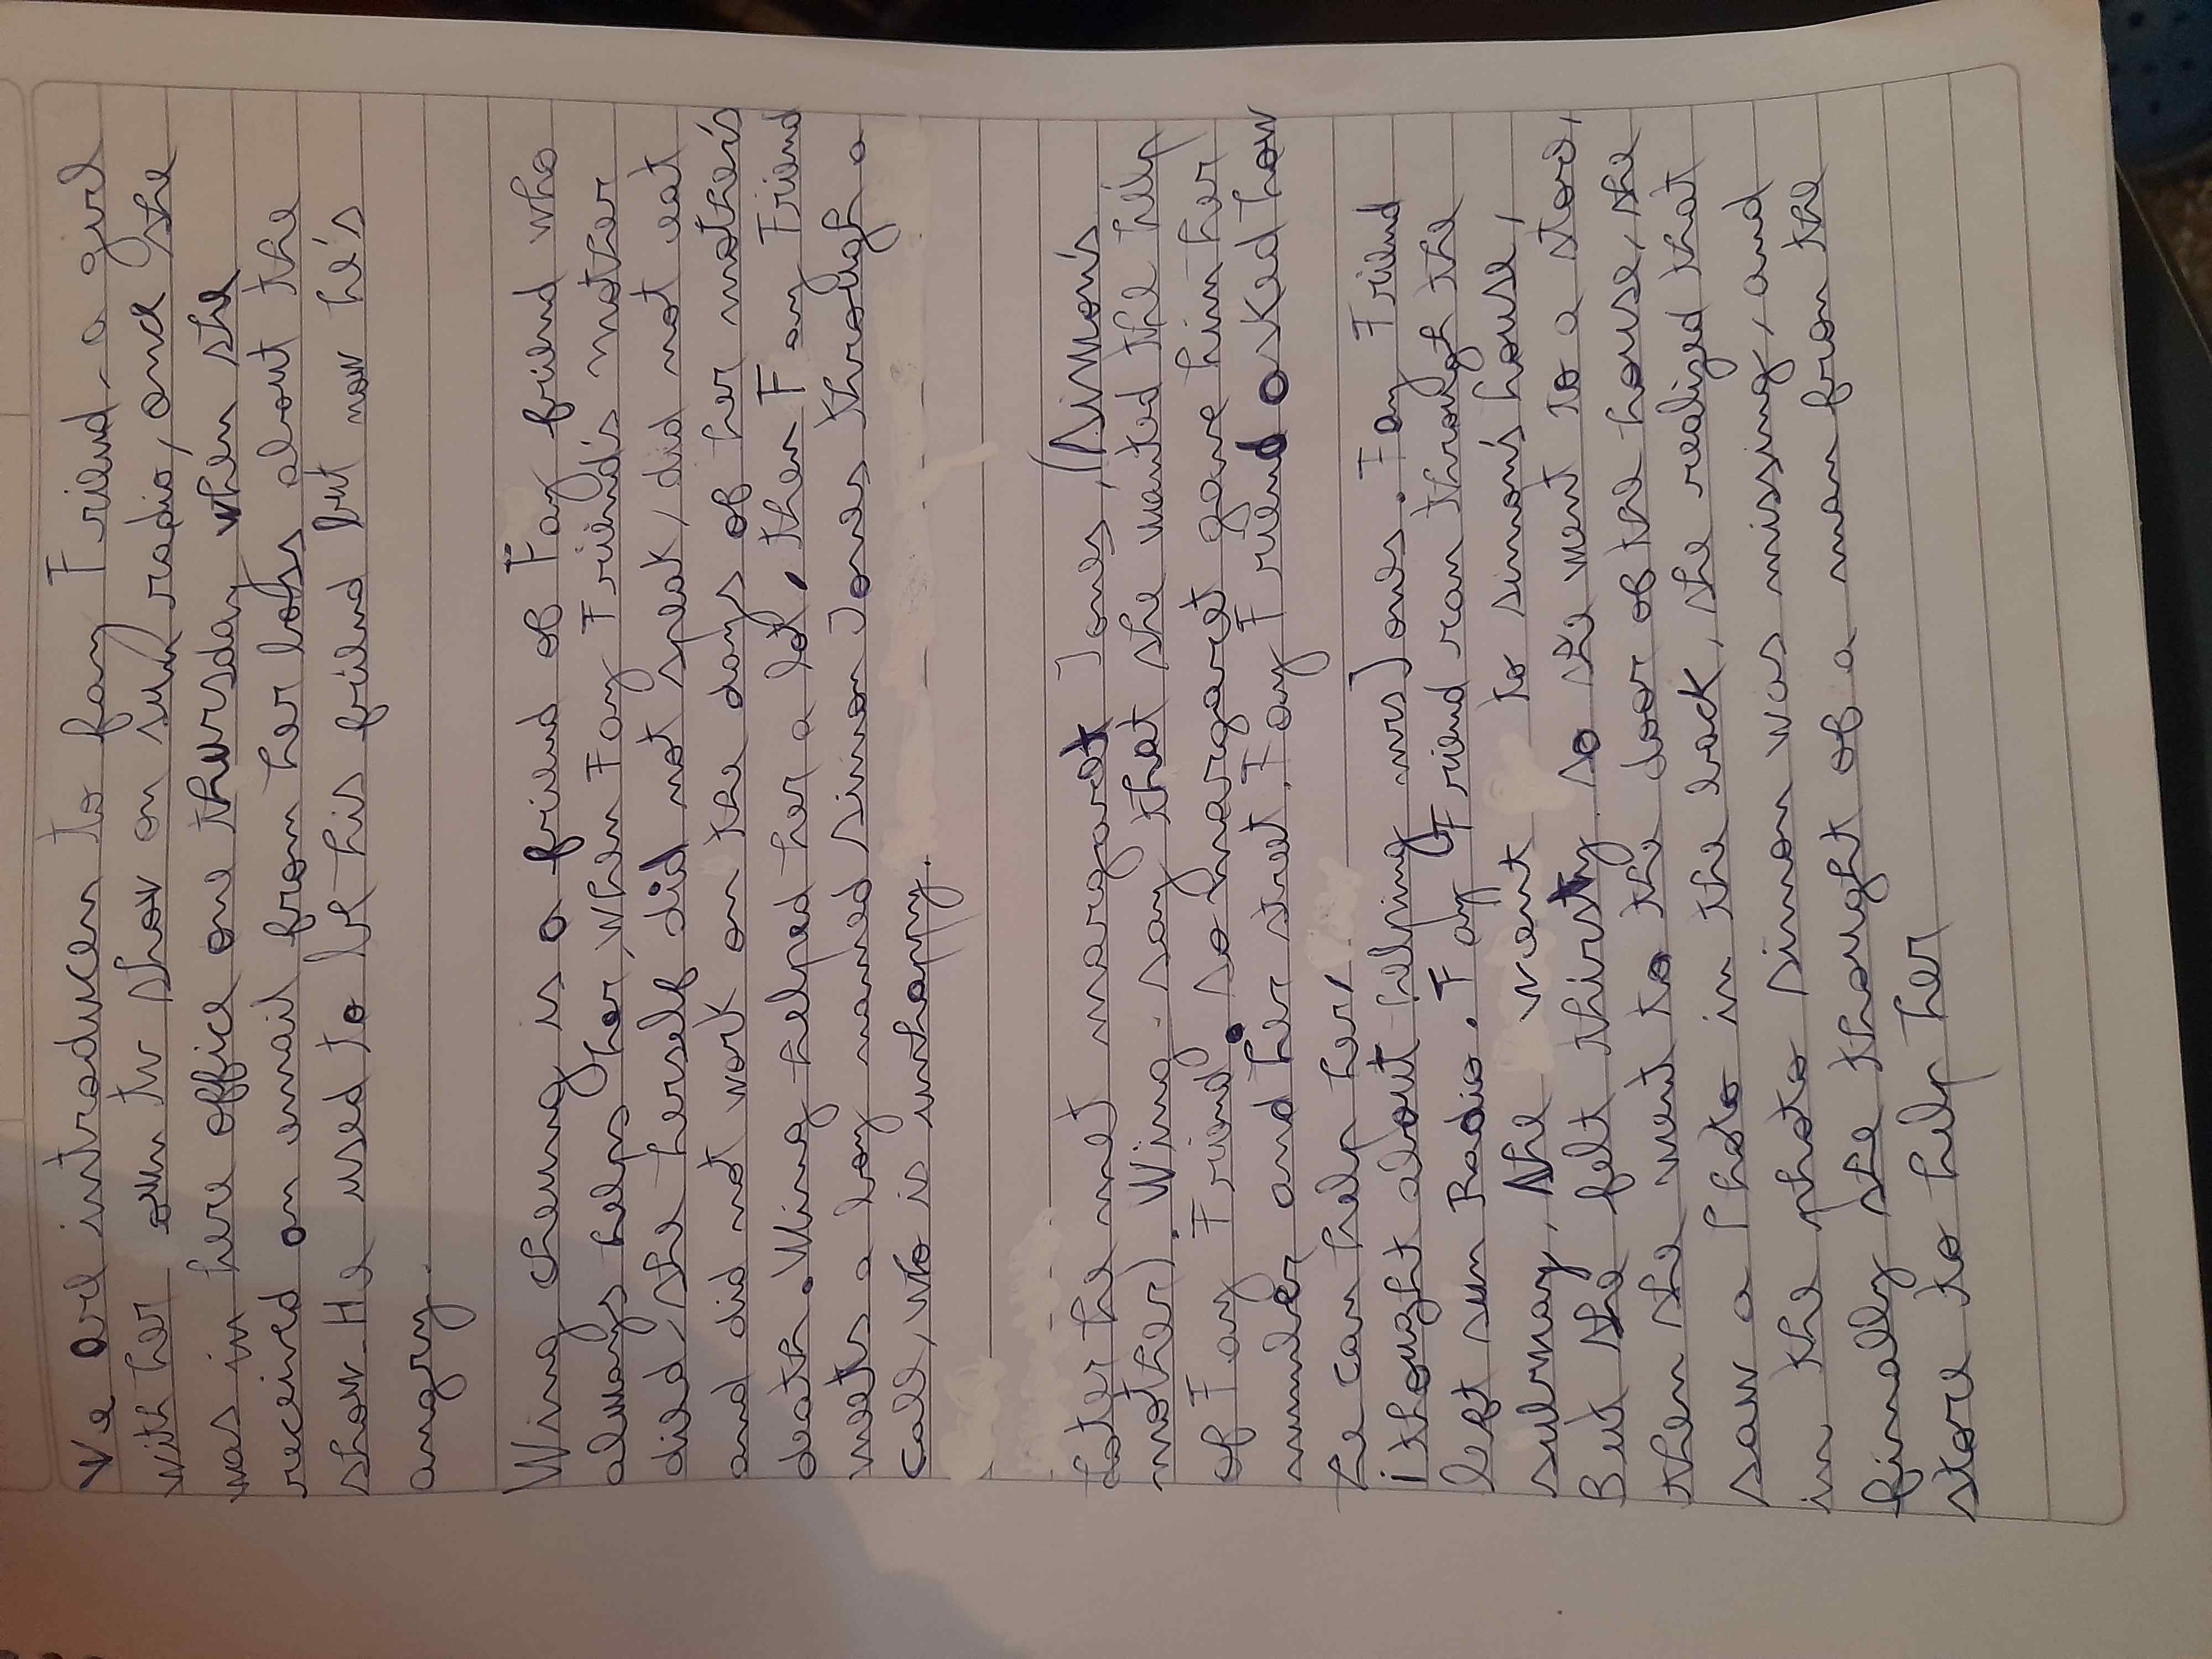 We are introduces to fay Friend, a girl
with her own tv show on sun radio, and she
was in here office one thursday when she
received an email from her lobs about the
show. He used to lob his friend but now he's
angry.
Wing cheung is a friend of Fay friend who
always helps her, when Fay Friend's mother
died, she herself did not speak, did not eat
and did not work on the days of her mother's
death. Wing helped her a lot, then Fay Friend
meets a boy named simon Jones through a
call, who is unhappy.
later he met margaret Jones (Simon's
mother). Wing say that she wanted the help
of Fay Friend. So margaret gave him her
number and her street, Fay Friend asked how
he can help her,
ithought about helping mrs Jones. Fay Friend
left sun Radio. Fay Friend ran through the
subway, she went to simon's house,
But she felt thirsty so she went to a store,
then she went to the door of the house, she
saw a photo in the back, she realized that
in the photo simon was missing, and
finally she thought of a man from the
store to help her